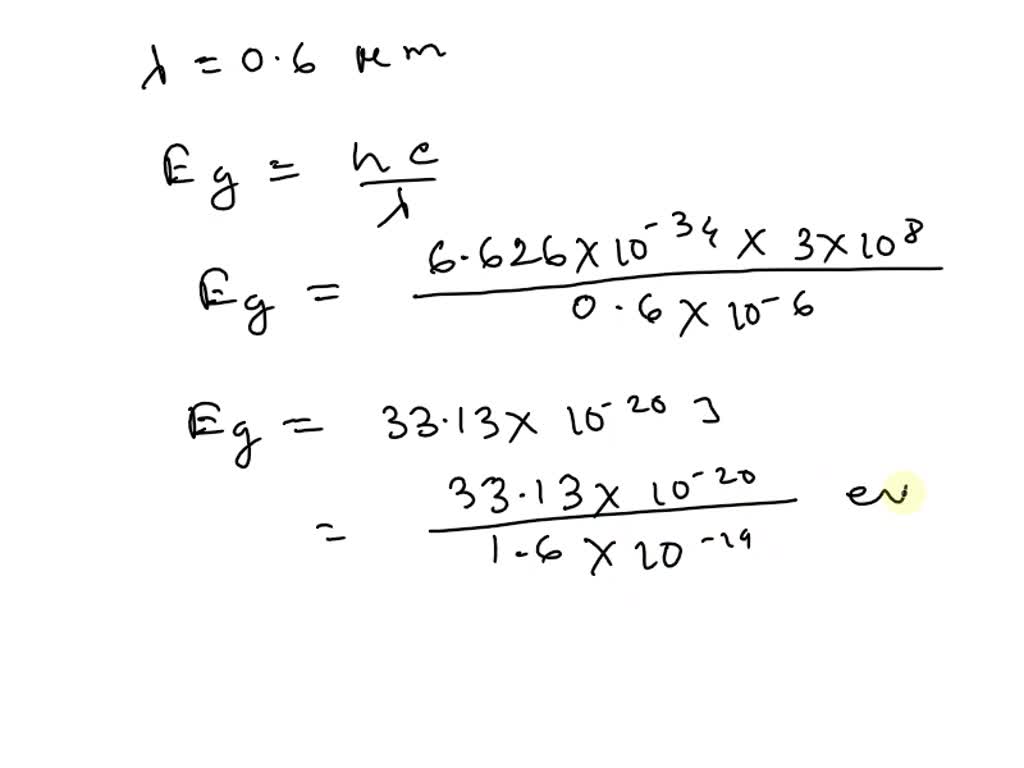 λ = 0.6 μm
Eg = hc/λ
Eg = 6.626 × 10⁻³⁴ × 3 × 10⁸ / 0.6 × 10⁻⁶
Eg = 33.13 × 10⁻²⁰ J
= 33.13 × 10⁻²⁰ / 1.6 × 10⁻¹⁹ ev